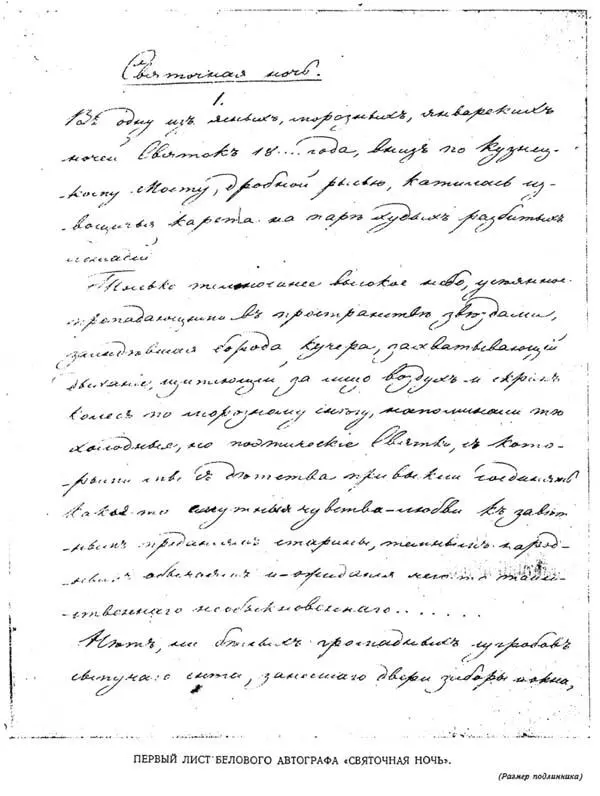 Святочная ночь.
1.
Въ одну изъ ясныхъ, морозныхъ, январскихъ
ночей Святокъ 18.... года, внизъ по кузнец-
кому мосту, дробной рысью, катилась из-
вощичья карета на парѣ худыхъ разбитыхъ
лошадей
Только темносинее высокое небо, усѣянное
пропадающими въ пространствѣ звѣздами,
заиндѣвшая борода кучера, захватывающій
дыханіе, щиплющій за лицо воздухъ и скрипъ
колесъ по морозному снѣгу, напоминали тѣ
холодныя, но поэтическіе Святки, съ кото-
рыми мы съ дѣтства привыкли соединять
какія то смутныя чувства-любви къ завѣт-
нымъ преданіямъ старины, темнымъ народ-
нымъ обычаямъ и-ожиданія чего то таин-
ственнаго необыкновеннаго........
Нѣтъ, ни бѣлыхъ громадныхъ сугробовъ
сыпучаго снѣга, занесшаго двери заборы и окна,
ПЕРВЫЙ ЛИСТ БЕЛОВОГО АВТОГРАФА «СВЯТОЧНАЯ НОЧЬ».
(Размер подлинника)